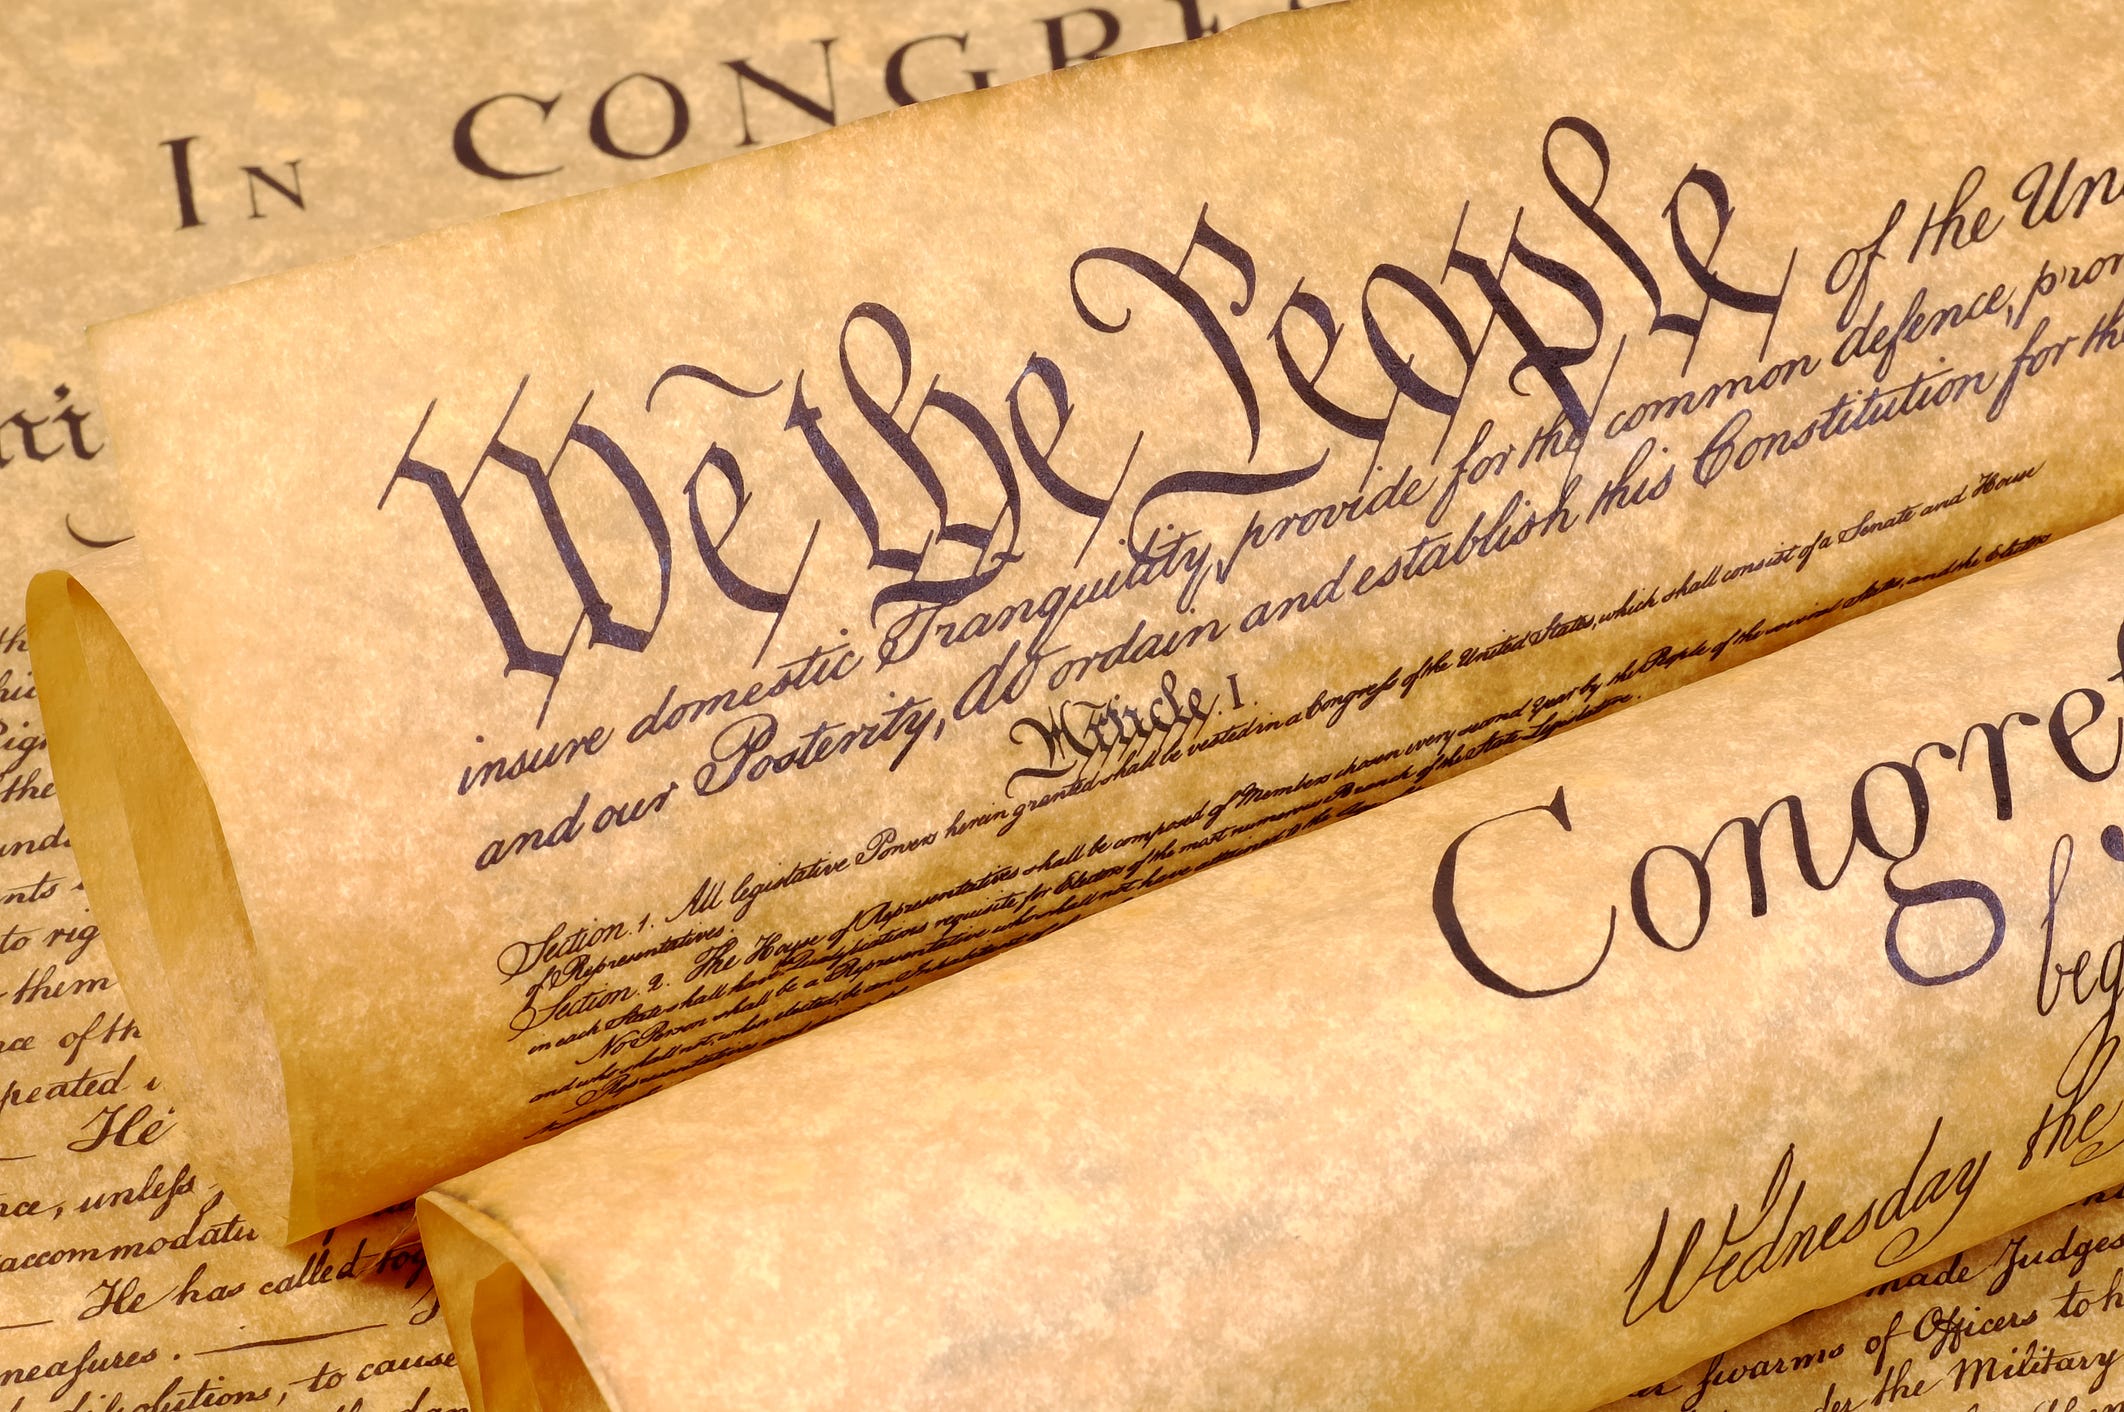 IN CONGRE
We the People of the Un
insure domestic Tranquility, provide for the common defence, pro
and our Posterity, do ordain and establish this Constitution for th
Article. I.
Section. 1. All legislative Powers herein granted shall be vested in a Congress of the United States, which shall consist of a Senate and House
of Representatives.
Section. 2. The House of Representatives shall be composed of Members chosen every second Year by the People of the several States, and the Electors
in each State shall have Qualifications requisite for Electors of the most numerous Branch of the State Legislature.
No Person shall be a Representative who shall not have attained to the
and who shall not, when elected, be an Inhabitant of
Representatives and
Congre
beg
Wednesday the
to rig
them
ce of th
peated
He
ce, unless
accommodatio
He has called tog
measures.
to cause
made Judges
swarms of Officers to h
the Military